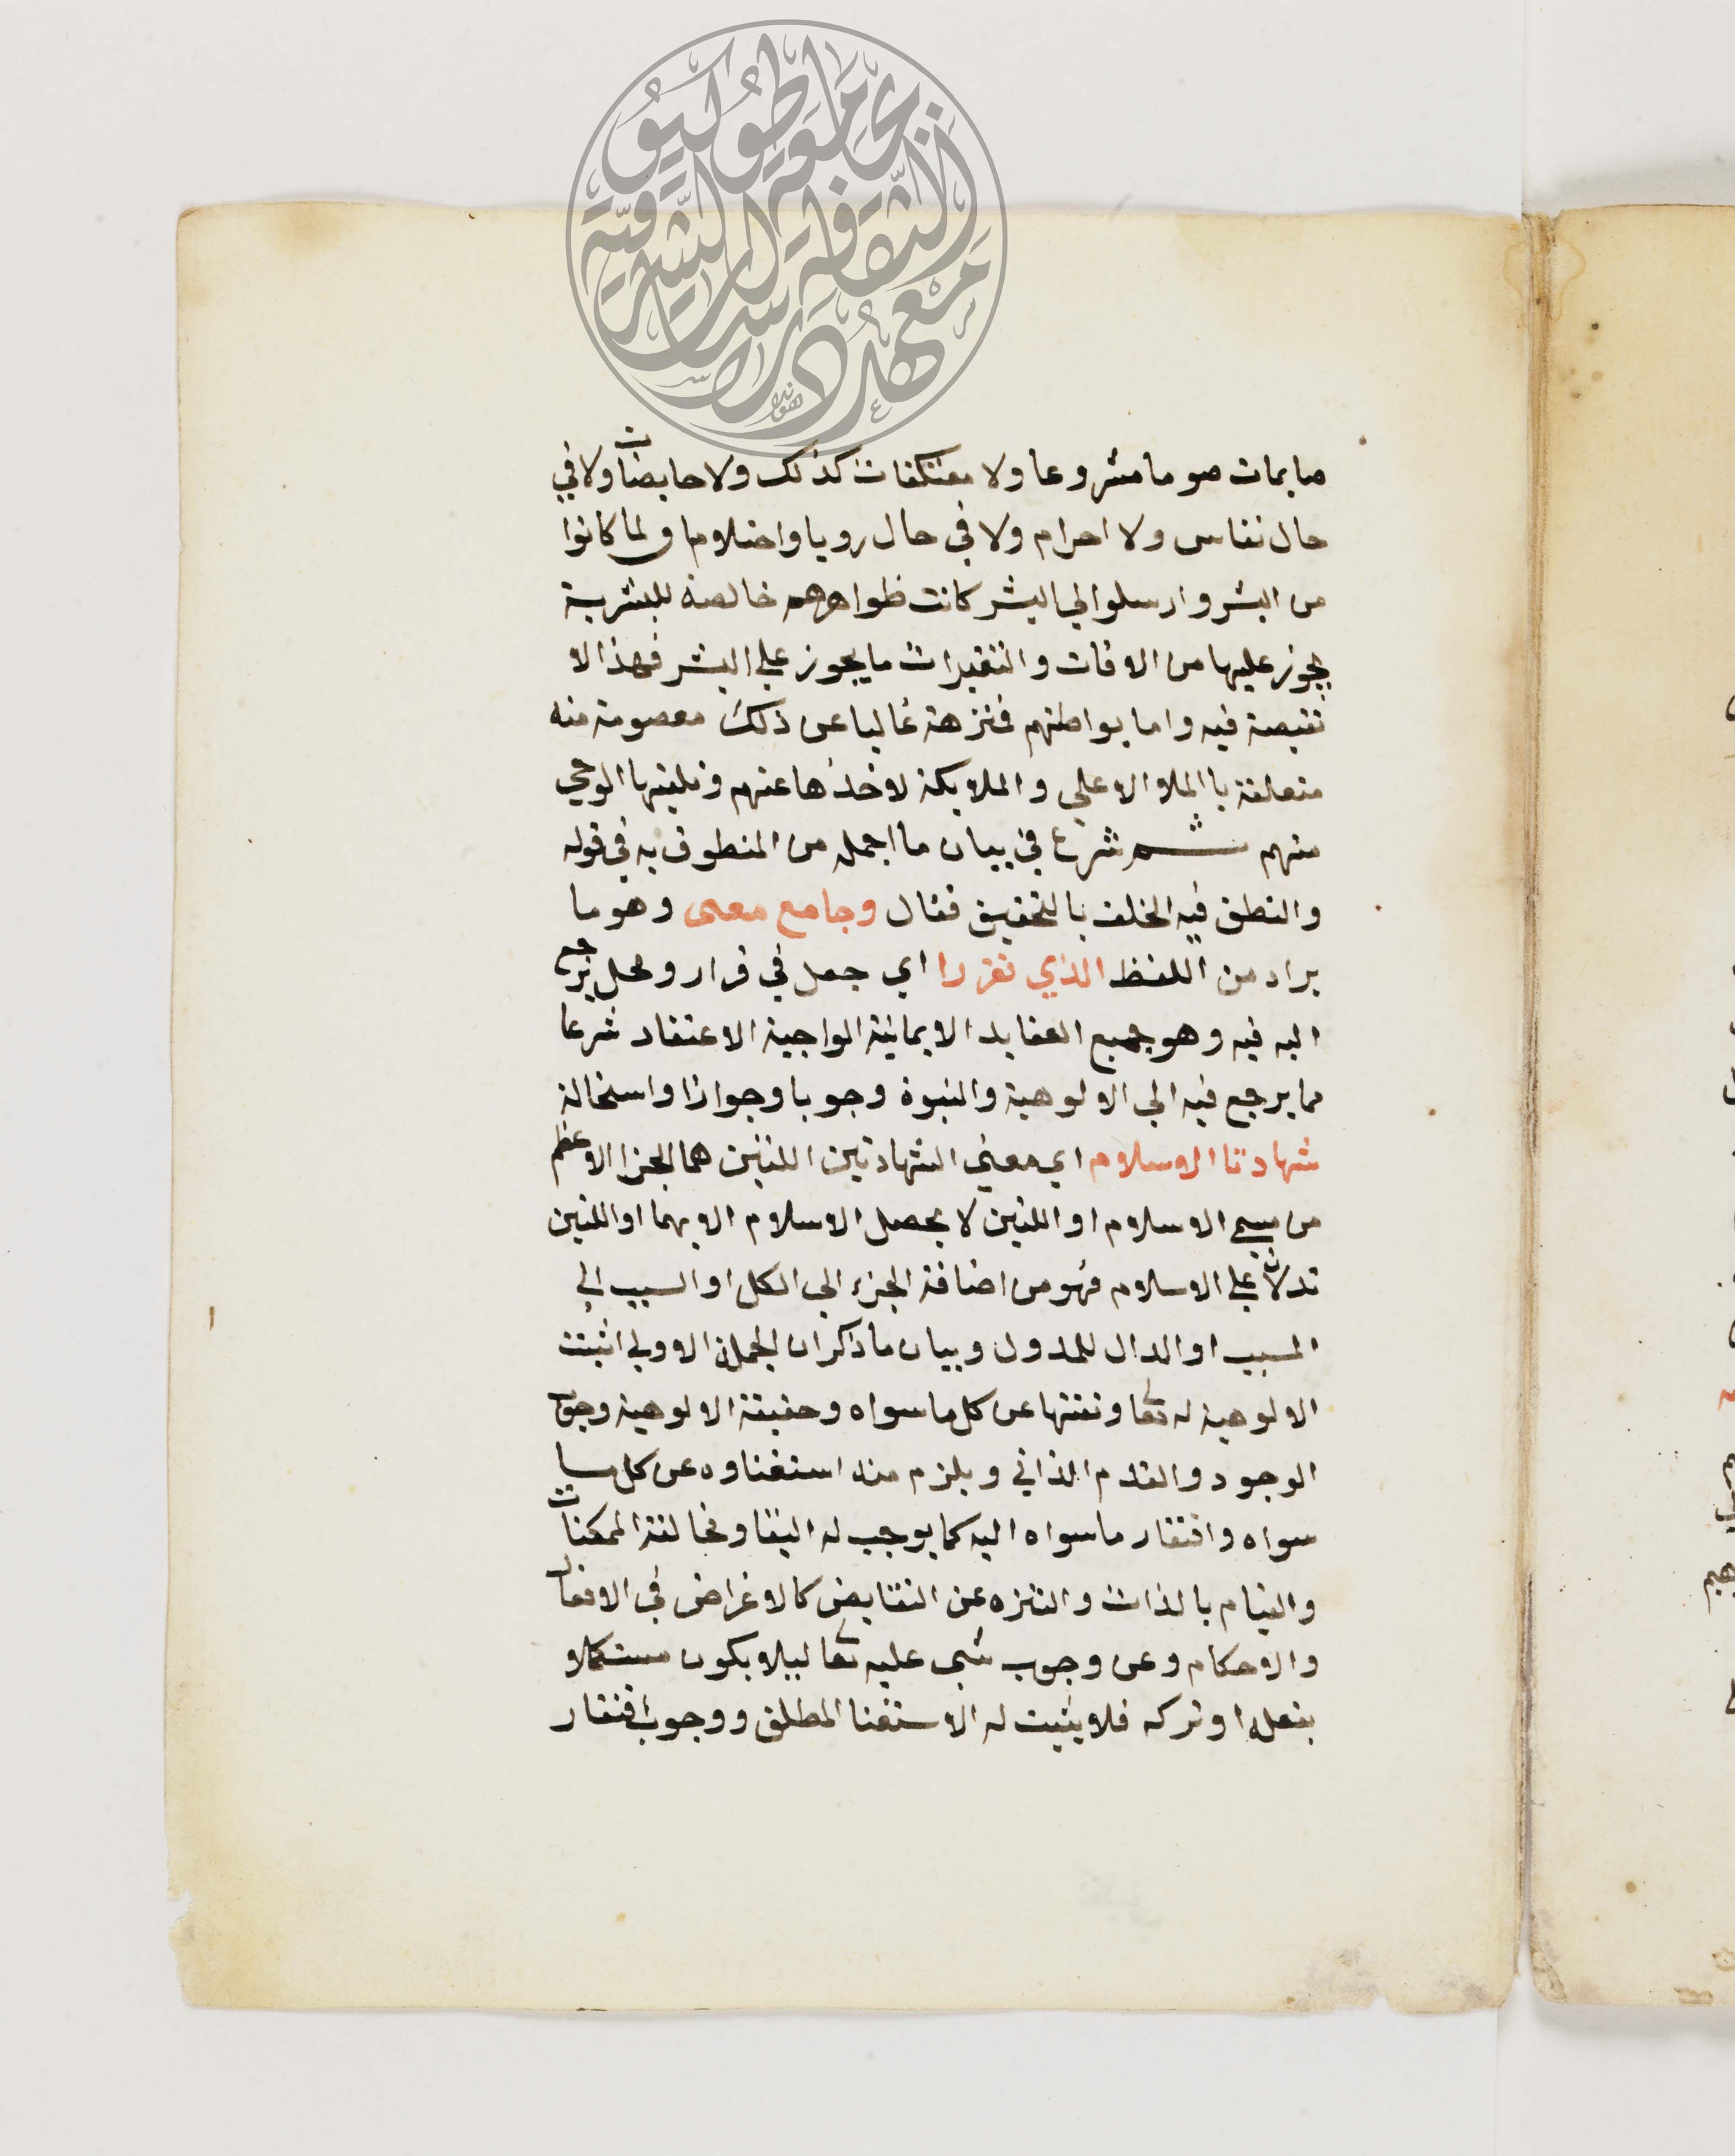 صايمات صوما مشروعا ولا معتكفات كذلك ولا حايضات ولا في
حال نفاس ولا احرام ولا في حال رويا واحتلام ولما كانوا
من البشر وارسلوا الي البشر كانت ظواهرهم خالصة للبشرية
يجوز عليها من الافات والتغيرات ما يجوز علي البشر فهذا لا
نقيصة فيه واما بواطنهم فمنزهة غالبا عن ذلك معصومة منه
متعلقة باالملا الاعلي والملايكة لاخذها عنهم وتلقيها الوحي
منهم ثم شرع في بيان ما اجمله من المنطوق به في قوله
والنطق فيه الخلف بالتحقيق فقال وجامع معني وهو ما
يراد من اللفظ الذي تقررا اي جعل في قرار ومحل يرجع
اليه فيه وهو جميع العقايد الايمانية الواجبة الاعتقاد شرعا
مما يرجع فيه الي الالوهية والنبوة وجوبا وجوازا واستحالة
شهادتا الاسلام اي معني الشهادتين اللتين هما الجزا الاعظم
من مسمي الاسلام او اللتين لا يحصل الاسلام الا بهما او اللتين
تدلان علي الاسلام فهو من اضافة الجزء الي الكل او السبب الي
المسبب او الدال للمدلول وبيان ما ذكر ان الجملة الاولي اثبتت
الالوهية له تعالي ونفتها عن كل ما سواه وحقيقة الالوهية وجوب
الوجود والقدم الذاتي ويلزم منه استغناوه عن كل ما
سواه وافتقار ما سواه اليه كما يوجب له البقا ومخالفة الممكنات
والقيام بالذات والتنزه عن النقايض كالاغراض في الافعال
والاحكام وعن وجوب شي عليه تعالي ليلا يكون مستكملا
بفعله او تركه فلا يثبت له الاستغنا المطلق ووجوب افتقار